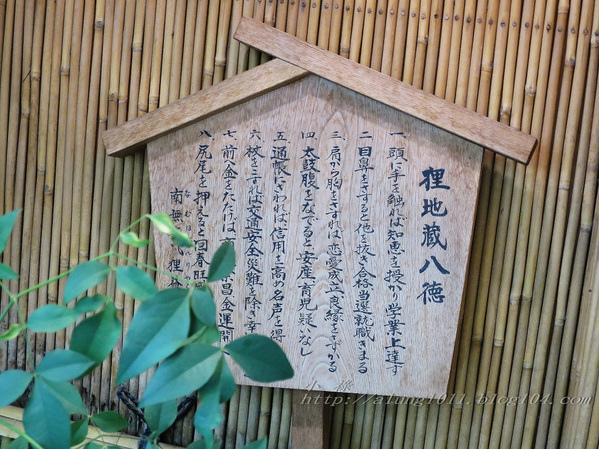 狸地蔵八徳
一、頭に手を触れば知恵を授かり学業上達す
二、目鼻をさすると他を抜き合格当選就職きまる
三、肩から胸をさすれば、恋愛成立良縁をさずかる
四、太鼓腹をなでると安産、育児疑いなし
五、通帳にさわれば、信用を高め名声を得
六、杖をこすれば交通安全災難を除き幸
七、前八金をたたけば、商 昌金運開
八、尻尾を押えると回春旺
南無 狸
http://alung1011.blog104.com/